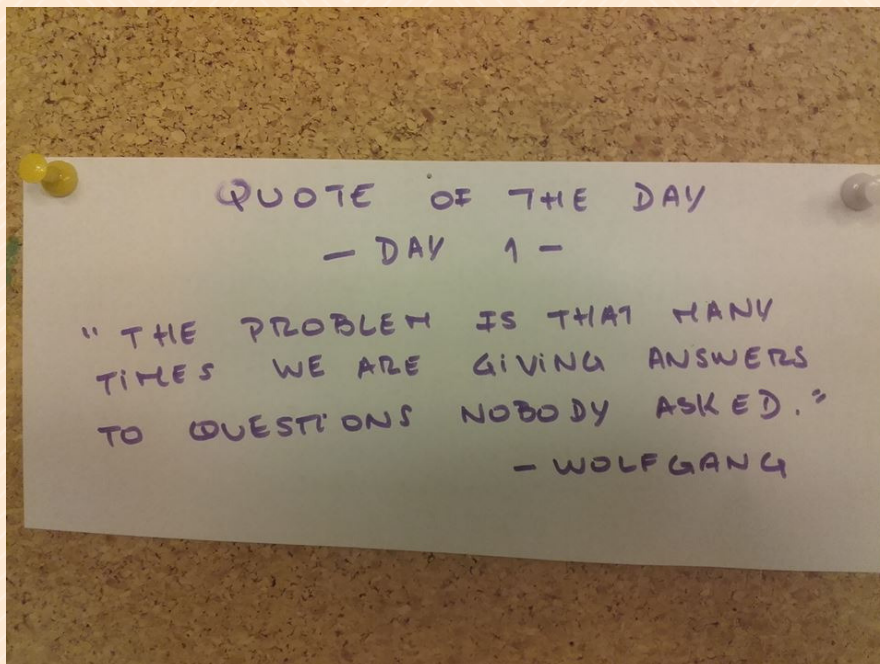 QUOTE OF THE DAY
— DAY 1 —
" THE PROBLEM IS THAT MANY
TIMES WE ARE GIVING ANSWERS
TO QUESTIONS NOBODY ASKED."
— WOLFGANG